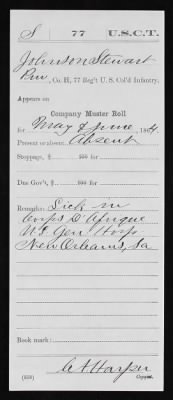 S 77 U.S.C.T.
Johnson Stewart
Pvt, Co. H, 77 Reg't U. S. Col'd Infantry.
Appears on
Company Muster Roll
for May & June, 1864.
Present or absent Absent
Stoppage, $ 100 for
Due Gov't, $ 100 for
Remarks: Sick in
Corps D'Afrique
US Gen Hosp
New Orleans, La
Book mark:
(358) Copyist.